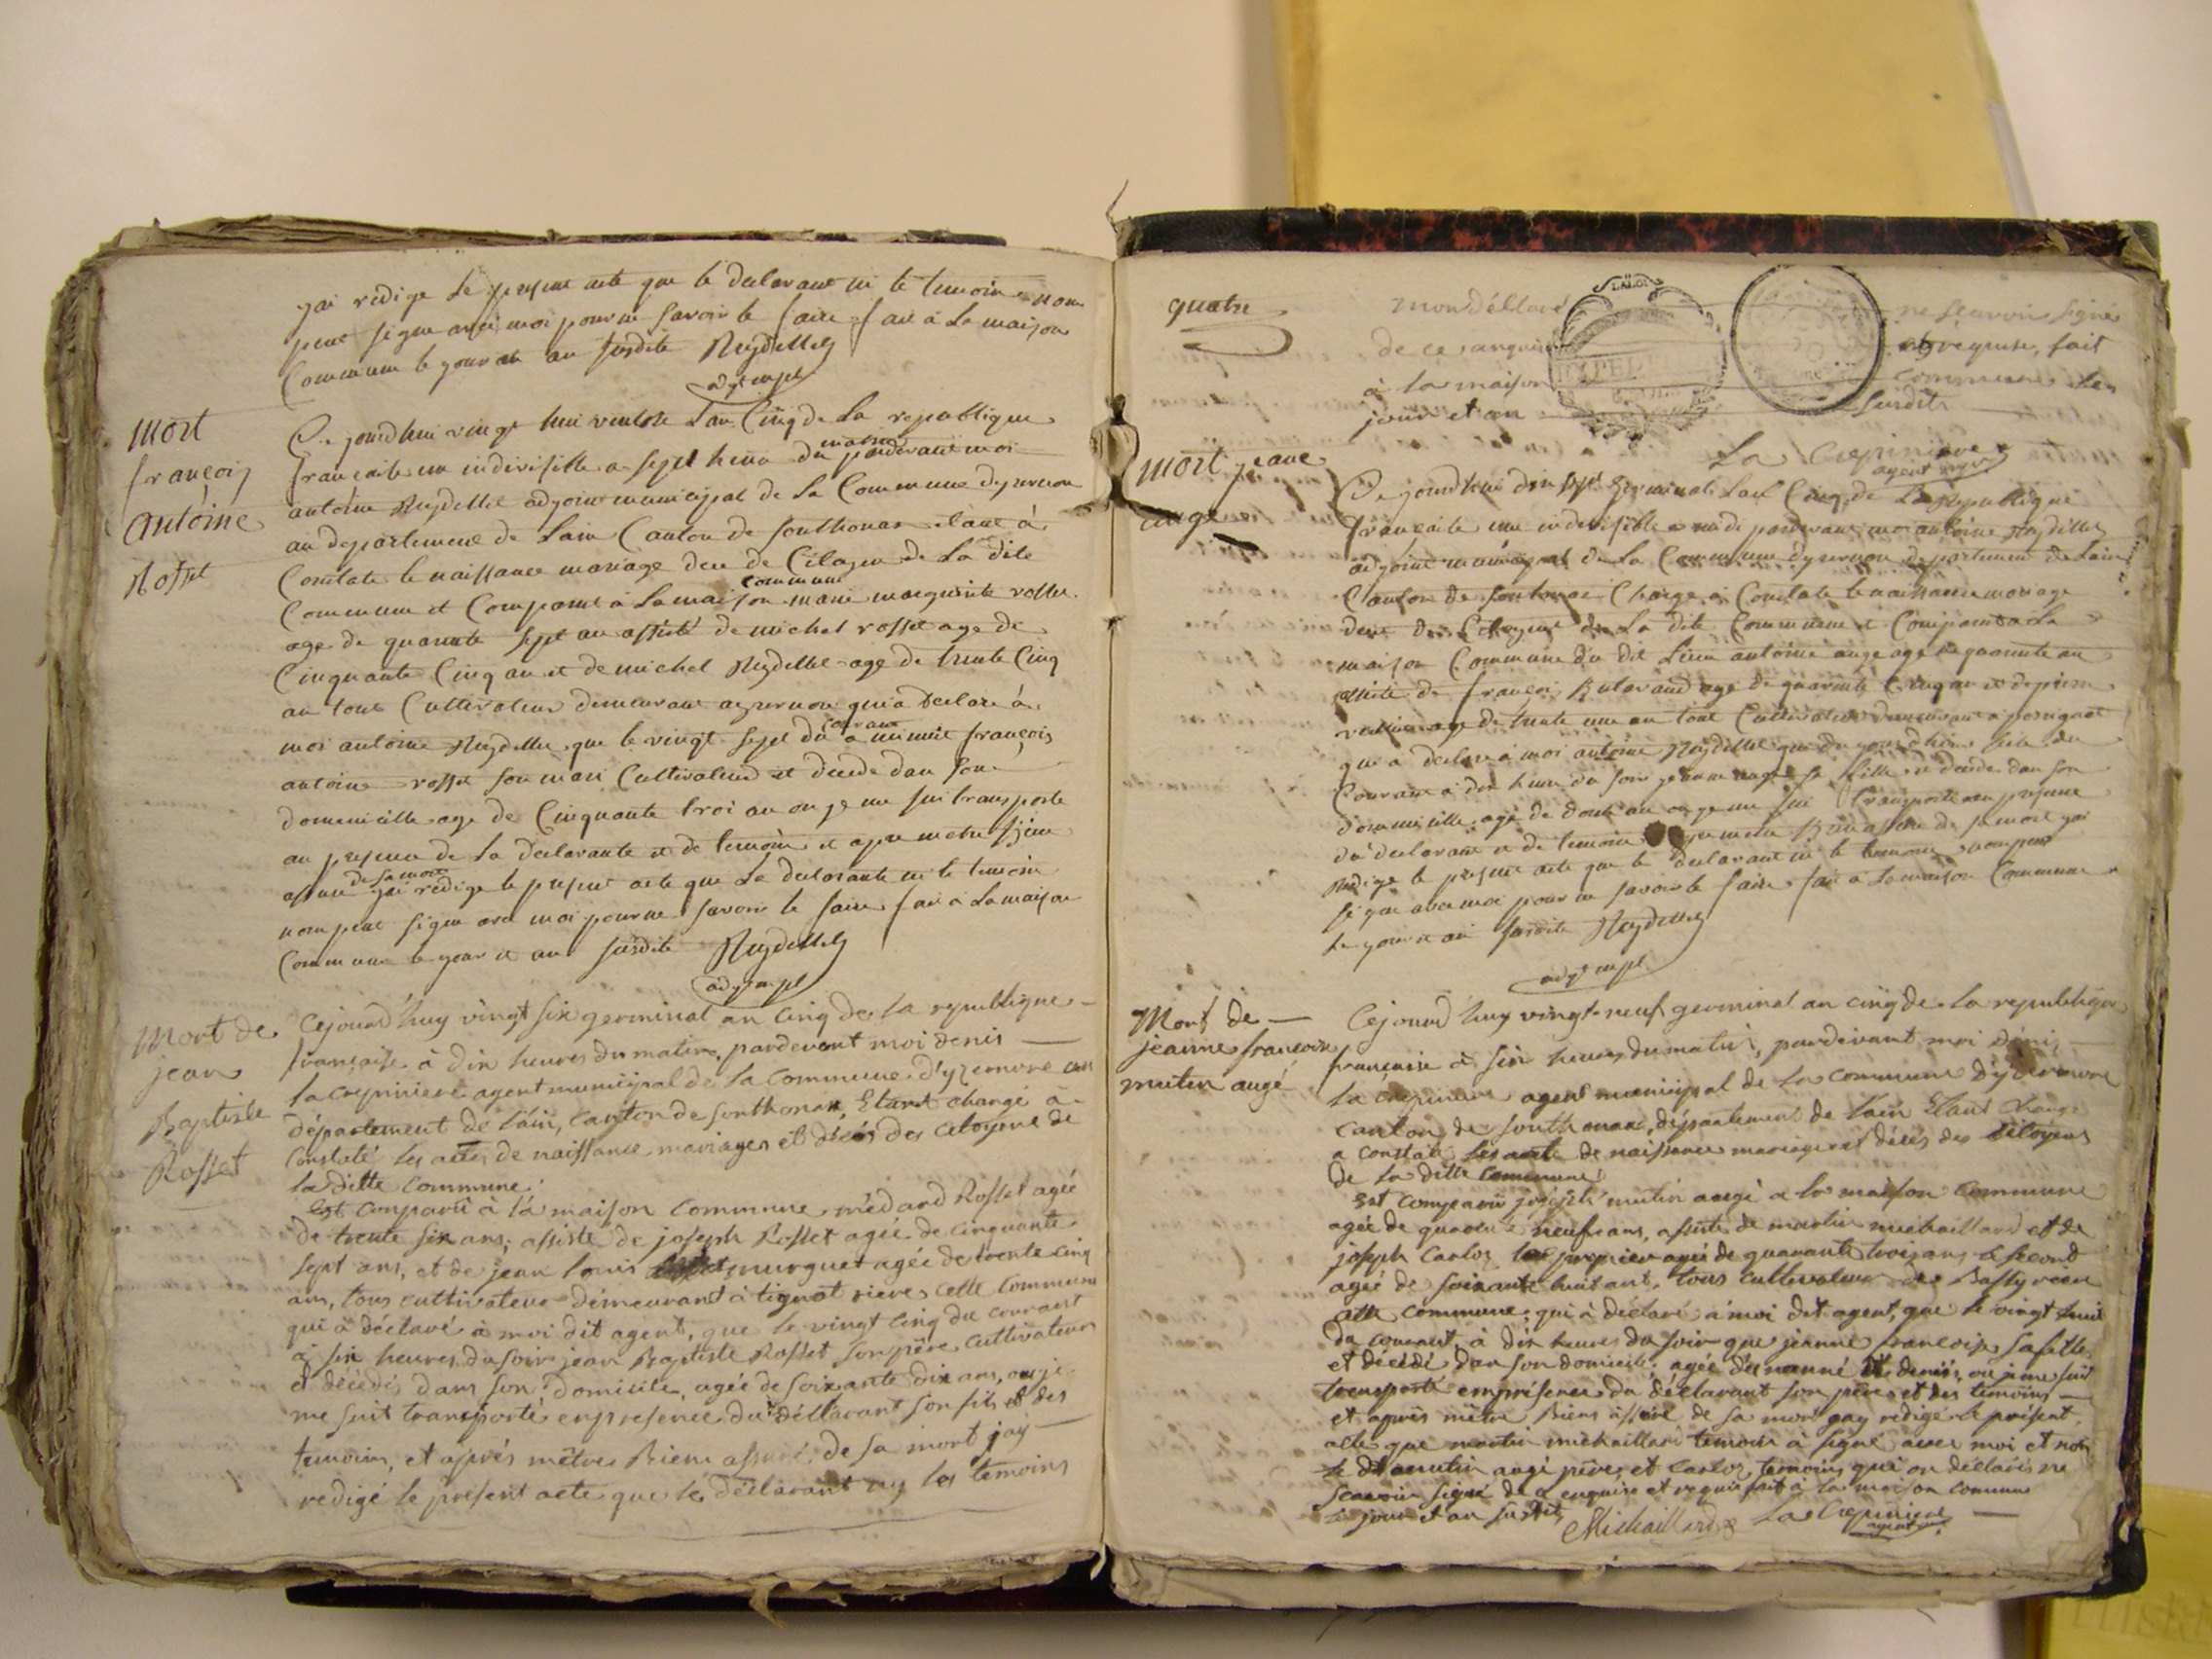 jai redige le present acte que le declarant ni le temoin nom
peut signe avec moi pour ne savoir le faire fait a la maison
Commune le jour et an susdite Reydellet
adjt mpl
Mort
françois
antoine
Rosset
Ce jourdhui vingt huit ventose l'an Cinq de la republique
francaise une indivisible a sept heure du matin pardevant moi
antoine Reydellet adjoint municipal de la Commune dyzernore
au departement de Lain Canton de Sonthonax etant à
Constate le naissance mariage dece de Citoyen de la dite
Commune et Comparut à la maison commune marie marguerite rosset
age de quarante sept an assisté de michel rosset age de
Cinquante Cinq an et de michel Reydellet age de trente Cinq
an tous Cultivateur demeurant a yzernore qui a Declaré à
moi antoine Reydellet que le vingt sept du courant a minuit françois
antoine rosset son mari Cultivateur et decede dan son
domicille age de Cinquante troi an ou je me sui transporte
au presence de la declarante et de temoin et apre metre
assure de sa mort jai redige le present acte que la declarante ni le temoin
nom peut signe avec moi pour ne savoir le faire fait a la maison
Commune le jour et an susdite Reydellet
adjt mpl
Mort de
jean
Baptiste
Rosset
Cejourd'huy vingt six germinal an cinq de la republique
francaise à dix heures du matin, pardevant moi denis
lacrepiniere agent municipal de la commune d'yzernore au
département de l'ain, canton de sonthonax, Etant chargé à
Constaté les actes de naissance mariages et décés des citoyens de
la ditte commune.
Est comparû à la maison commune médard Rosset agée
de trente six ans, assisté de joseph Rosset agée de cinquante
sept ans, et de jean louis murguet agée de trente cinq
ans, tous cultivateur demeurant à tignat riere cette commune
qui à déclaré à moi dit agent, que le vingt cinq du courrant
à six heures du soir jean Baptiste Rosset son père, cultivateur
et décédés dans son domicile, agée de soixante dix ans, ou je
me suit transporté en presence du déllarant son fils, et des
temoins, et après mêtre Bien assuré de sa mort jay
redigé le present acte que le déllarant ny les temoins
quatre
mon déllaré ne sçavoir signé
de ce enquis et requis, fait
à la maison commune les
jour et an susdits
La Crepiniere
agent mpl
Mort jeane
auge
Ce jourdhui dix sept Germinal l'an Cinq de La Republique
francaise une indivisible a midi pardevant moi antoine Reydellet
adjoint municipal de la Commune dyzernore departement de Lain
Canton de Sontonax Charge a Constate le naissance mariage
dece de Citoyen de la dite Commune et Comparut a la
maison Commune du dit Lieu antoine auge age de quarante an
assiste de françois age de quarante Cinq an et de pierre
age de trente une an tout Cultivateur demeurant a perignat
qui a declare à moi antoine Reydellet que du jourdhier seize du
Courant a dix heure du soir jeanne auge sa fille et decede dan son
domicille age de douze an ou je me sui transporte au presence
du declarant et de temoin apre metre assure de sa mort jai
Redige le present acte que le declarant ni le temoin nom peut
signe avec moi pour ne savoir le faire fait a la maison Commune
le jour et an susdite Reydellet
adjt mpl
Mort de
jeanne françoise
mutin augé
Cejourd'huy vingt neuf germinal an cinq de la republique
francaise à six heures du matin, pardevant moi Dénis
la crepiniere agent municipal de la commune d'yzernore
canton de sonthonax, département de l'ain Etant charge
a constaté les acte de naissance mariage et décés des citoyens
de la ditte commune.
Est comparu joseph mutin augé a la maison commune
agée de quarente neuf ans, assisté de martin michaillard et de
joseph Carloz le premier agée de quarante trois ans le second
agée de soixante huit ans, tous cultivateur de riere
cette commune, qui à déclaré à moi dit agent, que le vingt huit
du courant, à dix heures du soir que jeanne francoise sa fille
et décédé dan son domicile, agée d'une année et demis, ou je me suit
transporté en présence du déclarant son père et des temoins
et après mêtre Biens assuré de sa mort jay redigé le présent
acte que martin michaillard temoin à signé avec moi et non
le dit mutin augé père, et Carloz temoins qui on déclarés ne
scavoir signé de ce enquis et requis fait à la maison commune
le jour et an susdit Michaillard La Crepiniere
agent